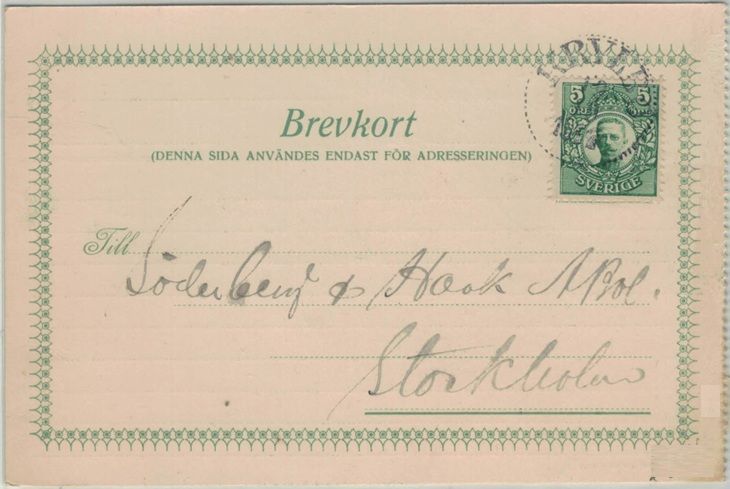 Brevkort
(DENNA SIDA ANVÄNDES ENDAST FÖR ADRESSERINGEN)
5 5
ÖRE
SVERIGE
Till
Söderberg & Haak
Stockholm